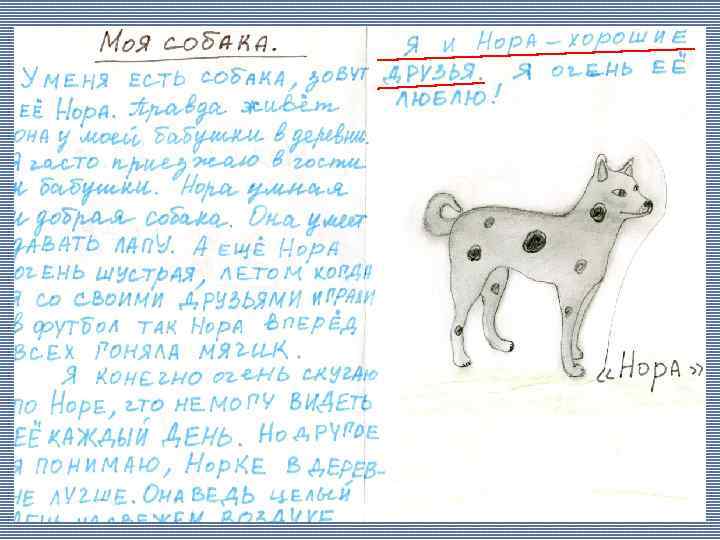 Моя собака.
У меня есть собака, зовут
её Нора. Правда живёт
она у моей бабушки в деревни.
Я часто приезжаю в гости
к бабушки. Нора умная
и добрая собака. Она умеет
давать лапу. А ещё Нора
очень шустрая, летом когда
я со своими друзьями играли
в футбол так Нора вперёд
всех гоняла мячик.
Я конечно очень скучаю
по Норе, что не могу видеть
её каждый день. Но другое
я понимаю, Норке в дерев-
не лучше. Она ведь целый
день на свежем воздухе
Я и Нора – хорошие
друзья. Я очень её
люблю!
«Нора»